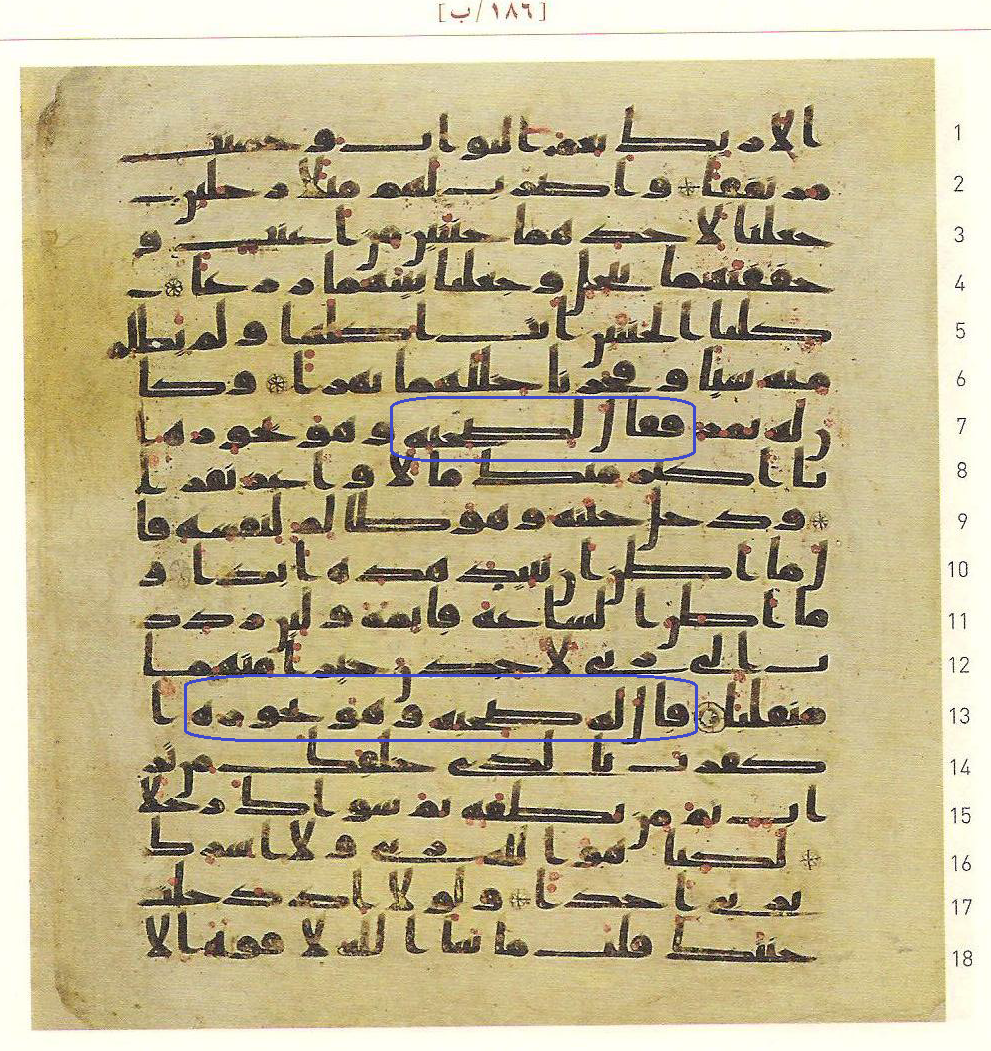 [١٨٦/ب]
الارىك نعم الثواب وحسنت 1
مرتفقا واضرب لهم مثلا رجلين 2
جعلنا لاحدهما جنتين من اعنب و 3
حففنهما بنخل وجعلنا بينهما زرعا 4
كلتا الجنتين اتت اكلها ولم تظلم 5
منه شيا وفجرنا خللهما نهرا وكا 6
ن له ثمر فقال لصحبه وهو يحوره ا 7
نا اكثر منك مالا واعز نفرا 8
ودخل جنته وهو ظالم لنفسه قا 9
ل ما اظن ان تبيد هذه ابدا و 10
ما اظن الساعة قايمة ولين ردد 11
ت الى ربي لاجدن خيرا منهما 12
منقلبا قال له صحبه وهو يحوره ا 13
كفرت بالذي خلقك من تر 14
اب ثم من نطفة ثم سواك رجلا 15
لكنا هو الله ربي ولا اشرك 16
بربي احدا ولولا اذ دخلت 17
جنتك قلت ما شا الله لا قوة الا 18